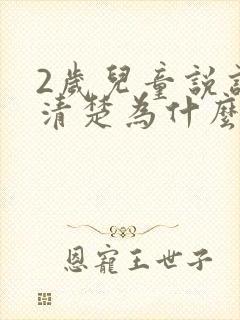 2歲兒童說
清楚為什麼
恩寵王世子